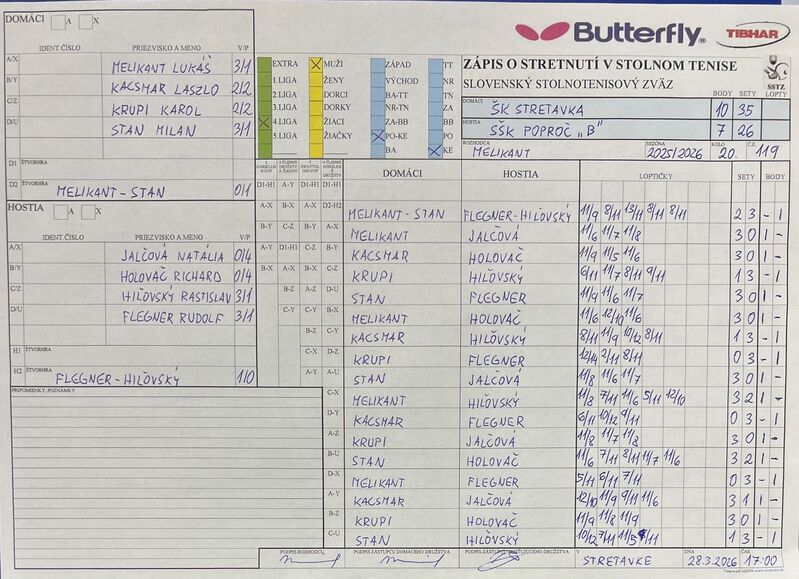 DOMÁCI A X
Butterfly
TIBHAR
IDENT.ČÍSLO PRIEZVISKO A MENO V/P
A/X MELIKANT LUKÁŠ 3/1
B/Y KACSMAR LASZLO 2/2
C/Z KRUPI KAROL 2/2
D/U STAN MILAN 3/1
D1 ŠTVORHRA
D2 ŠTVORHRA MELIKANT - STAN 0/1
HOSTIA A X
IDENT.ČÍSLO PRIEZVISKO A MENO V/P
A/X JALČOVÁ NATÁLIA 0/4
B/Y HOLOVAČ RICHARD 0/4
C/Z HIĽOVSKÝ RASTISLAV 3/1
D/U FLEGNER RUDOLF 3/1
H1 ŠTVORHRA
H2 ŠTVORHRA FLEGNER - HIĽOVSKÝ 1/0
PRIPOMIENKY, POZNÁMKY
EXTRA MUŽI ZÁPAD TT
1.LIGA ŽENY VÝCHOD NR
2.LIGA DORCI BA-TT TN
3.LIGA DORKY NR-TN ZA
4.LIGA ŽIACI ZA-BB BB
5.LIGA ŽIAČKY PO-KE PO
BA KE
ZÁPIS O STRETNUTÍ V STOLNOM TENISE
SLOVENSKÝ STOLNOTENISOVÝ ZVÄZ
SSTZ
BODY SETY LOPTY
DOMÁCI ŠK STRETAVKA 10 35
HOSTIA ŠŠK POPROČ „B" 7 26
ROZHODCA MELIKANT SEZÓNA 2025/2026 KOLO 20. Č.Z. 119
DOMÁCI HOSTIA LOPTIČKY SETY BODY
MELIKANT - STAN FLEGNER - HIĽOVSKÝ 11/9 8/11 13/11 8/11 8/11 2 3 - 1
MELIKANT JALČOVÁ 11/6 11/7 11/8 3 0 1 -
KACSMAR HOLOVAČ 11/9 11/5 11/6 3 0 1 -
KRUPI HIĽOVSKÝ 6/11 11/7 8/11 9/11 1 3 - 1
STAN FLEGNER 11/9 11/6 11/7 3 0 1 -
MELIKANT HOLOVAČ 11/6 12/10 11/6 3 0 1 -
KACSMAR HIĽOVSKÝ 8/11 11/9 10/12 8/11 1 3 - 1
KRUPI FLEGNER 12/14 2/11 8/11 0 3 - 1
STAN JALČOVÁ 11/8 11/6 11/7 3 0 1 -
C-X MELIKANT HIĽOVSKÝ 11/8 7/11 11/6 5/11 12/10 3 2 1 -
D-Y KACSMAR FLEGNER 6/11 10/12 9/11 0 3 - 1
A-Z KRUPI JALČOVÁ 11/8 11/7 11/8 3 0 1 -
B-U STAN HOLOVAČ 11/6 7/11 8/11 11/7 11/6 3 2 1 -
D-X MELIKANT FLEGNER 5/11 6/11 7/11 0 3 - 1
A-Y KACSMAR JALČOVÁ 12/10 11/9 9/11 11/6 3 1 1 -
B-Z KRUPI HOLOVAČ 11/9 11/8 11/9 3 0 1 -
C-U STAN HIĽOVSKÝ 10/12 7/11 11/5 9/11 1 3 - 1
PODPIS ROZHODCU PODPIS ZÁSTUPCU DOMÁCEHO DRUŽSTVA PODPIS ZÁSTUPCU HOSŤUJÚCEHO DRUŽSTVA V STRETAVKE DŇA 28.3.2026 ČAS 17:00